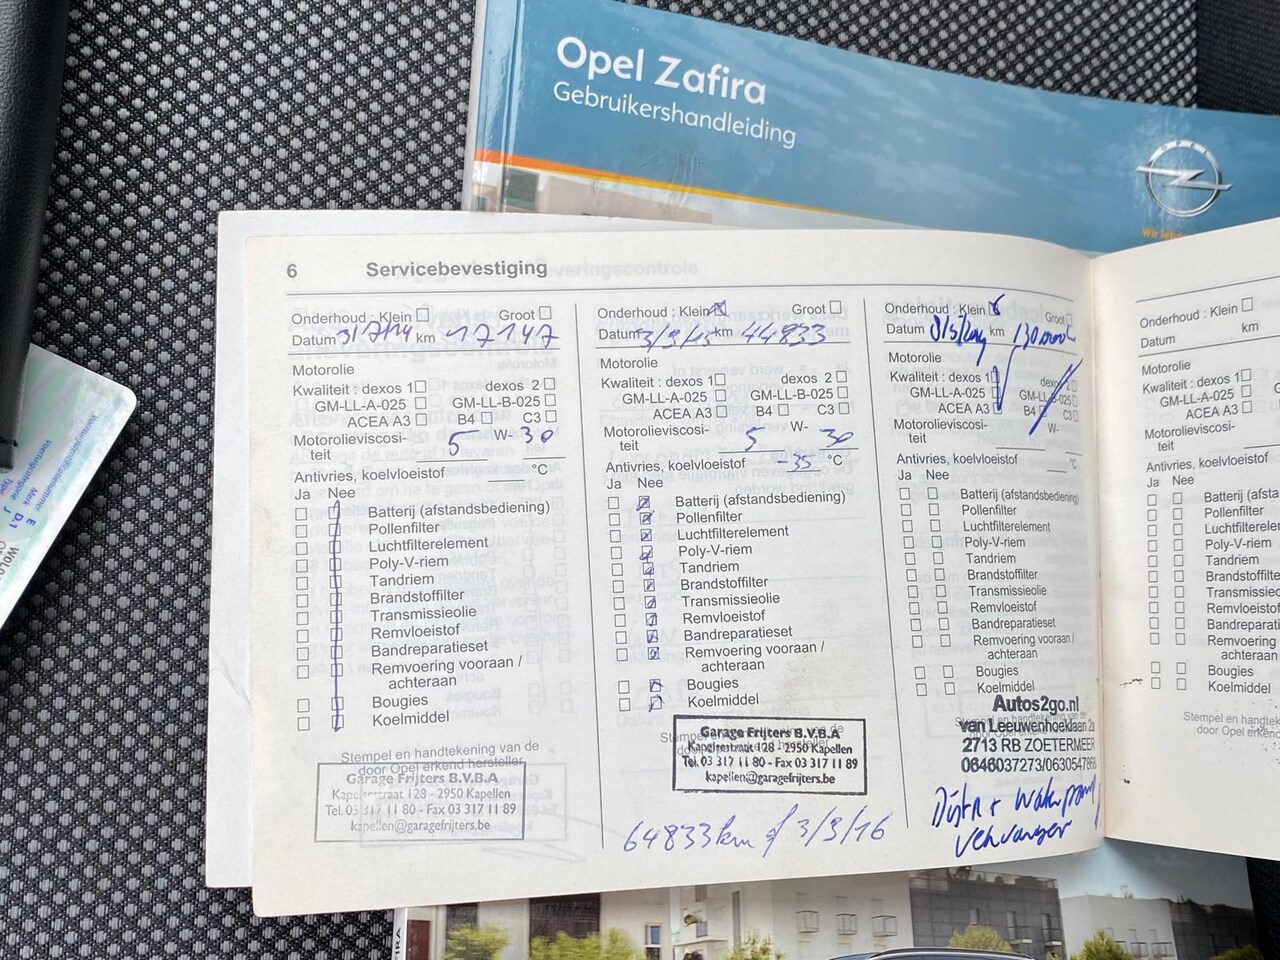 Opel Zafira
Gebruikershandleiding
OPEL
6 Servicebevestiging
Onderhoud : Klein Groot
Datum 3/7/14 km 17147
Motorolie
Kwaliteit : dexos 1 dexos 2
GM-LL-A-025 GM-LL-B-025
ACEA A3 B4 C3
Motorolieviscosi-
teit 5 W- 30
Antivries, koelvloeistof °C
Ja Nee
Batterij (afstandsbediening)
Pollenfilter
Luchtfilterelement
Poly-V-riem
Tandriem
Brandstoffilter
Transmissieolie
Remvloeistof
Bandreparatieset
Remvoering vooraan /
achteraan
Bougies
Koelmiddel
Stempel en handtekening van de
door Opel erkend hersteller
Garage Frijters B.V.B.A
Kapelsestraat 128 - 2950 Kapellen
Tel. 03 317 11 80 - Fax 03 317 11 89
kapellen@garagefrijters.be
Onderhoud : Klein Groot
Datum 3/9/15 km 44833
Motorolie
Kwaliteit : dexos 1 dexos 2
GM-LL-A-025 GM-LL-B-025
ACEA A3 B4 C3
Motorolieviscosi- W-
teit 5 30
Antivries, koelvloeistof -35 °C
Ja Nee
Batterij (afstandsbediening)
Pollenfilter
Luchtfilterelement
Poly-V-riem
Tandriem
Brandstoffilter
Transmissieolie
Remvloeistof
Bandreparatieset
Remvoering vooraan /
achteraan
Bougies
Koelmiddel
Garage Frijters B.V.B.A
Kapelsestraat 128 - 2950 Kapellen
Tel. 03 317 11 80 - Fax 03 317 11 89
kapellen@garagefrijters.be
64833km 3/3/16
Onderhoud : Klein Groot
Datum km
Motorolie
Kwaliteit : dexos 1 dexos 2
GM-LL-A-025 GM-LL-B-025
ACEA A3 B4 C3
Motorolieviscosi- W-
teit
Antivries, koelvloeistof °C
Ja Nee
Batterij (afstandsbediening)
Pollenfilter
Luchtfilterelement
Poly-V-riem
Tandriem
Brandstoffilter
Transmissieolie
Remvloeistof
Bandreparatieset
Remvoering vooraan /
achteraan
Bougies
Koelmiddel
Autos2go.nl
van Leeuwenhoeklaan 2a
2713 RB ZOETERMEER
0646037273/0630547866
Distr + waterpomp
vervangen
Onderhoud : Klein
Datum km
Motorolie
Kwaliteit : dexos 1
GM-LL-A-025
ACEA A3
Motorolieviscosi-
teit
Antivries, koelvloeistof
Ja Nee
Batterij
Pollenfilter
Luchtfilterelement
Poly-V-riem
Tandriem
Brandstoffilter
Transmissieolie
Remvloeistof
Bandreparatieset
Remvoering
achteraan
Bougies
Koelmiddel
Stempel en
door Opel erkend